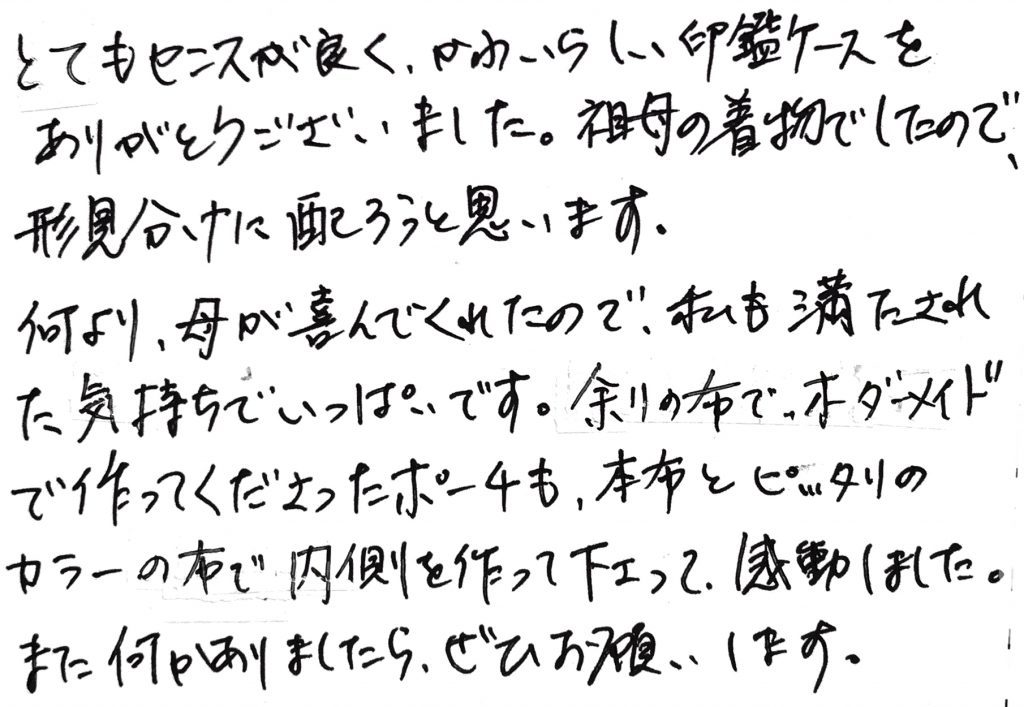 とてもセンスが良く、かわいらしい印鑑ケースを
ありがとうございました。祖母の着物でしたので、
形見分けに配ろうと思います。
何より、母が喜んでくれたので、私も満たされ
た気持ちでいっぱいです。余りの布で、オーダーメイド
で作ってくださったポーチも、本布とピッタリの
カラーの布で内側を作って下さって、感動しました。
また何かありましたら、ぜひお願いします。